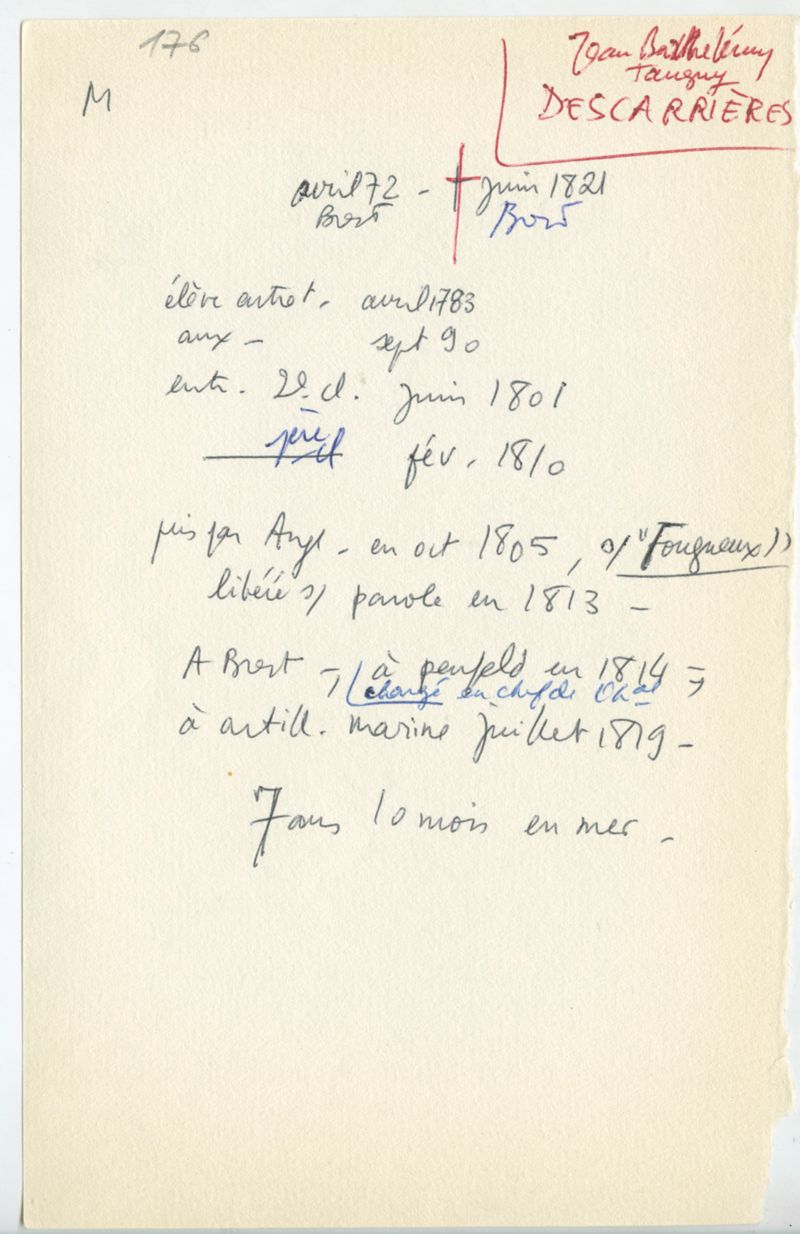 176
M
Jean Barthélémy
Tanguy
DESCARRIÈRES
avril 72 - † juin 1821
Brest Brest
élève entret. avril 1783
aux - sept 90
entr. 2e cl. juin 1801
1ère cl fév. 1810
pris par Angl. en oct 1805, s/ "Fougueux"
libéré s/ parole en 1813 -
A Brest -, à penfeld en 1814 -,
chargé en chef de
à artill. marine juillet 1819 -
7 ans 10 mois en mer -